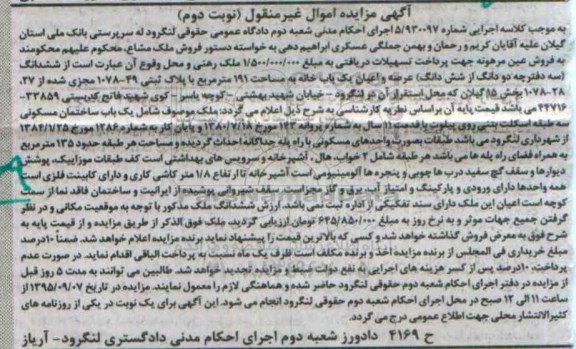 آگهی مزایده اموال غیرمنقول (نوبت دوم)
به موجب کلاسه اجرایی شماره ۵/۹۳۰۰۹۷ اجرای احکام مدنی شعبه دوم دادگاه عمومی حقوقی لنگرود له سرپرستی بانک ملی استان
گیلان علیه آقایان کریم و رحمان و بهمن جملگی عسکری ابراهیم دهی به خواسته دستور فروش ملک مشاع، محکوم علیهم محکومند
به فروش عین مرهونه جهت پرداخت تسهیلات دریافتی به مبلغ ۱/۵۰۰/۰۰۰/۰۰۰ ملک رهنی و محل وقوع آن عبارت است از ششدانگ
(سه دفترچه دو دانگ از شش دانگ) عرصه و اعیان یک باب خانه به مساحت ۱۹۱ مترمربع با پلاک ثبتی ۴۹-۱۰۷۸ مجزی شده از ۲۷،
۲۸-۱۰۷۸ بخش ۱۵ گیلان که محل استقرار آن در لنگرود - خیابان شهید بهشتی - کوچه یاسر - کوی شهید فاتح کدپستی ۳۳۸۵۹-
۴۴۷۱۶ می باشد قیمت پایه آن براساس نظریه کارشناسی به شرح ذیل اعلام می گردد: ملک موصوف شامل یک باب ساختمان مسکونی
سه طبقه اسکلت بتنی روی پیلوت با قدمت ۱۱ سال به شماره پروانه ۱۴۳ مورخ ۱۳۸۰/۷/۱۸ و پایان کار به شماره ۱۲۸۶ مورخ ۱۳۸۴/۱/۲۵
از شهرداری لنگرود می باشد طبقات بصورت واحدهای مسکونی با راه پله جداگانه احداث گردیده و مساحت هر طبقه حدود ۱۳۵ مترمربع
به همراه فضای راه پله ها می باشد هر طبقه شامل ۲ خواب، هال، آشپزخانه و سرویس های بهداشتی است کف طبقات موزاییک، پوشش
دیوارها و سقف گچ سفید درب ها چوبی و پنجره ها آلومینیومی است آشپزخانه تا ارتفاع ۱/۸ متر کاشی کاری و دارای کابینت فلزی است
همه واحدها دارای ورودی و پارکینگ و امتیاز آب، برق و گاز مجزاست. سقف شیروانی پوشیده از ایرانیت و ساختمان فاقد نما از سمت
کوچه است اعیان این ملک دارای سند تفکیکی از اداره ثبت نمی باشد. ارزش ششدانگ ملک مذکور با توجه به موقعیت مکانی و در نظر
گرفتن جمیع جهات موثر و به نرخ روز به مبلغ ۶۴۵/۸۵۰/۰۰۰ تومان ارزیابی گردید. ملک فوق الذکر از طریق مزایده و از قیمت پایه به
شرح فوق به معرض فروش گذاشته خواهد شد و کسی که بالاترین قیمت را پیشنهاد نماید برنده مزایده اعلام خواهد شد. ضمناً ۱۰ درصد
مبلغ خریداری فی المجلس از برنده مزایده اخذ و برنده مکلف است ظرف یک ماه نسبت به پرداخت الباقی اقدام نماید. در صورت عدم
پرداخت، ۱۰ درصد پس از کسر هزینه های اجرایی به نفع دولت ضبط و مزایده تجدید خواهد شد. طالبین می توانند به مدت ۵ روز قبل
از مزایده در دفتر اجرای احکام شعبه دوم حقوقی لنگرود حاضر شده و هماهنگی لازم را معمول نمایند. مزایده در تاریخ ۱۳۹۵/۰۹/۰۷ از
ساعت ۱۱ الی ۱۲ صبح در محل اجرای احکام شعبه دوم حقوقی لنگرود انجام می شود. این آگهی برای یک نوبت در یکی از روزنامه های
کثیرالانتشار محلی جهت اطلاع عمومی درج می گردد.
ح ۴۱۶۹ دادورز شعبه دوم اجرای احکام مدنی دادگستری لنگرود- آریاز